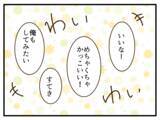 わい
わい
いいな!
めちゃくちゃ
かっこいい!
すてき
俺も
してみたい